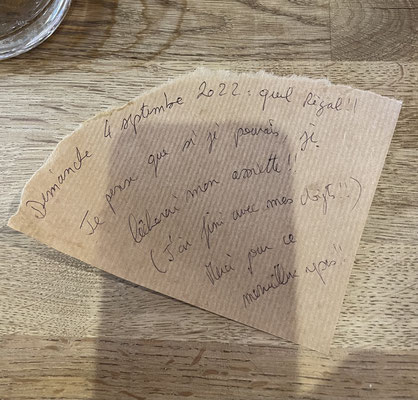 Dimanche 4 septembre 2022 : quel Régal !!
Je pense que si je pouvais, je
lècherai mon assiette !!
(J'ai fini avec mes doigts !!)
Merci pour ce
merveilleux repas !!